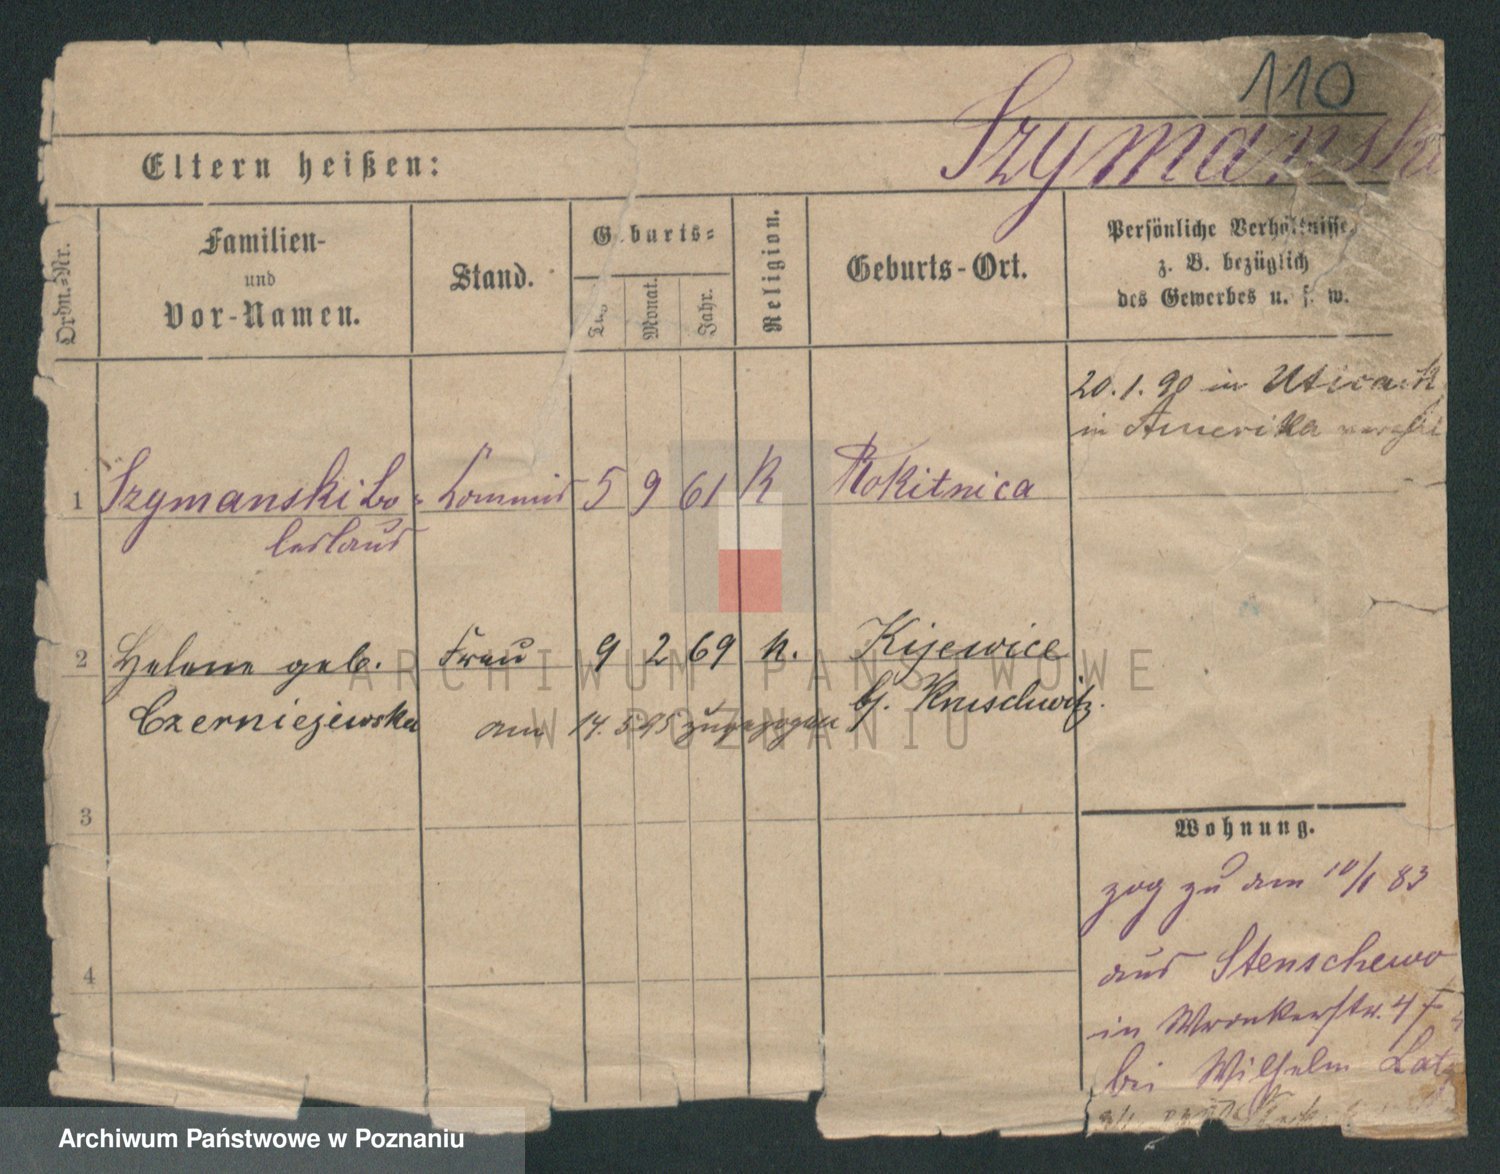 110
Szymanski
Eltern heißen:
Ordn.-Nr.
Familien-
und
Vor-Namen.
Stand.
Geburts-
Tag.
Monat.
Jahr.
Religion.
Geburts-Ort.
Persönliche Verhältnisse,
z. B. bezüglich
des Gewerbes u. s. w.
20.1.90 in Utica
in Amerika
1 Szymanski Bo- Commis 5 9 61 K Rokitnica
leslaus
2 Helene geb. Frau 9 2 69 k. Kijewice
Czerniejewska am 14. 5 95 zugezogen b/. Kruschwitz.
3
4
Wohnung.
zog zu am 10/1 83
aus Stenschewo
in Wronkerstr. 4
bei Wilhelm
ARCHIWUM PAŃSTWOWE
W POZNANIU
Archiwum Państwowe w Poznaniu